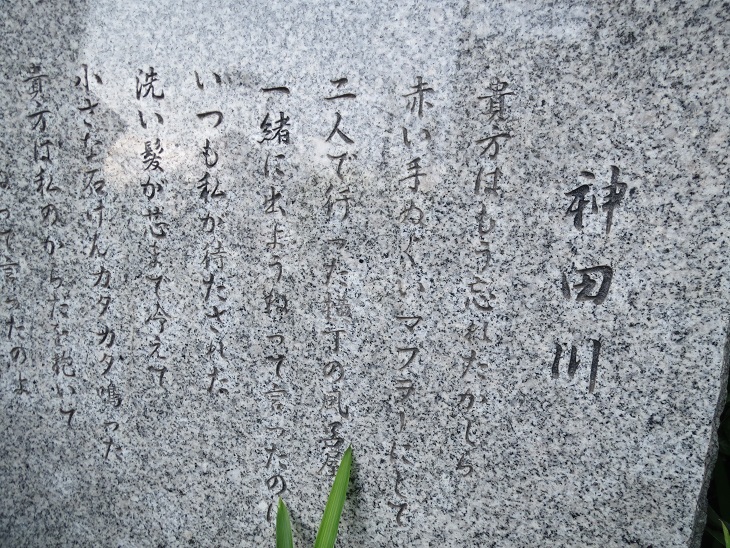 神田川
貴方はもう忘れたかしら
赤い手ぬぐいマフラーにして
二人で行った横丁の風呂屋
一緒に出ようねって言ったのに
いつも私が待たされた
洗い髪が芯まで冷えて
小さな石けんカタカタ鳴った
貴方は私のからだを抱いて
って言ったのよ